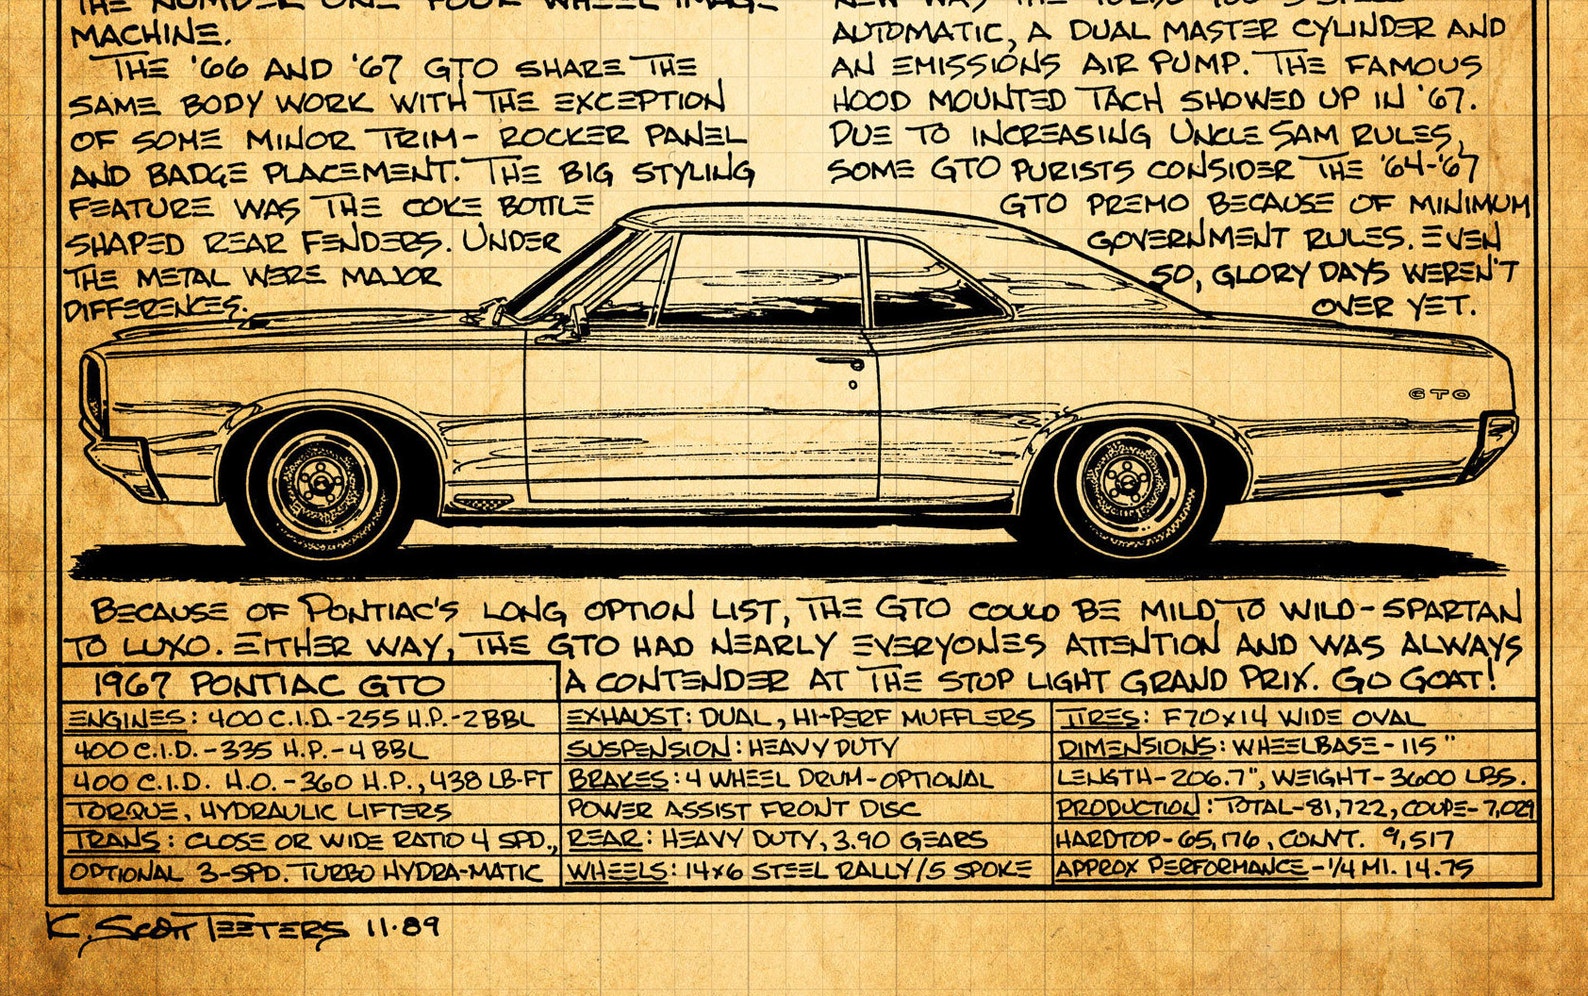 THE NUMBER ONE FOUR WHEEL IMAGE
MACHINE.
THE '66 AND '67 GTO SHARE THE
SAME BODY WORK WITH THE EXCEPTION
OF SOME MINOR TRIM- ROCKER PANEL
AND BADGE PLACEMENT. THE BIG STYLING
FEATURE WAS THE COKE BOTTLE
SHAPED REAR FENDERS. UNDER
THE METAL WERE MAJOR
DIFFERENCES.
NEW WAS THE TURBO 400 3-SPEED
AUTOMATIC, A DUAL MASTER CYLINDER AND
AN EMISSIONS AIR PUMP. THE FAMOUS
HOOD MOUNTED TACH SHOWED UP IN '67.
DUE TO INCREASING UNCLE SAM RULES,
SOME GTO PURISTS CONSIDER THE '64-'67
GTO PREMO BECAUSE OF MINIMUM
GOVERNMENT RULES. EVEN
SO, GLORY DAYS WEREN'T
OVER YET.
GTO
BECAUSE OF PONTIAC'S LONG OPTION LIST, THE GTO COULD BE MILD TO WILD-SPARTAN
TO LUXO. EITHER WAY, THE GTO HAD NEARLY EVERYONES ATTENTION AND WAS ALWAYS
A CONTENDER AT THE STOP LIGHT GRAND PRIX. GO GOAT!
1967 PONTIAC GTO
ENGINES: 400 C.I.D.-255 H.P.-2 BBL
400 C.I.D.-335 H.P.-4 BBL
400 C.I.D. H.O.-360 H.P., 438 LB-FT
TORQUE, HYDRAULIC LIFTERS
TRANS: CLOSE OR WIDE RATIO 4 SPD.,
OPTIONAL 3-SPD. TURBO HYDRA-MATIC
EXHAUST: DUAL, HI-PERF MUFFLERS
SUSPENSION: HEAVY DUTY
BRAKES: 4 WHEEL DRUM-OPTIONAL
POWER ASSIST FRONT DISC
REAR: HEAVY DUTY, 3.90 GEARS
WHEELS: 14x6 STEEL RALLY/5 SPOKE
TIRES: F70x14 WIDE OVAL
DIMENSIONS: WHEELBASE-115"
LENGTH-206.7", WEIGHT-3600 LBS.
PRODUCTION: TOTAL-81,722, COUPE-7,029
HARDTOP-65,176, CONVT. 9,517
APPROX PERFORMANCE-1/4 MI. 14.75
K. SCOTT TEETERS 11.89